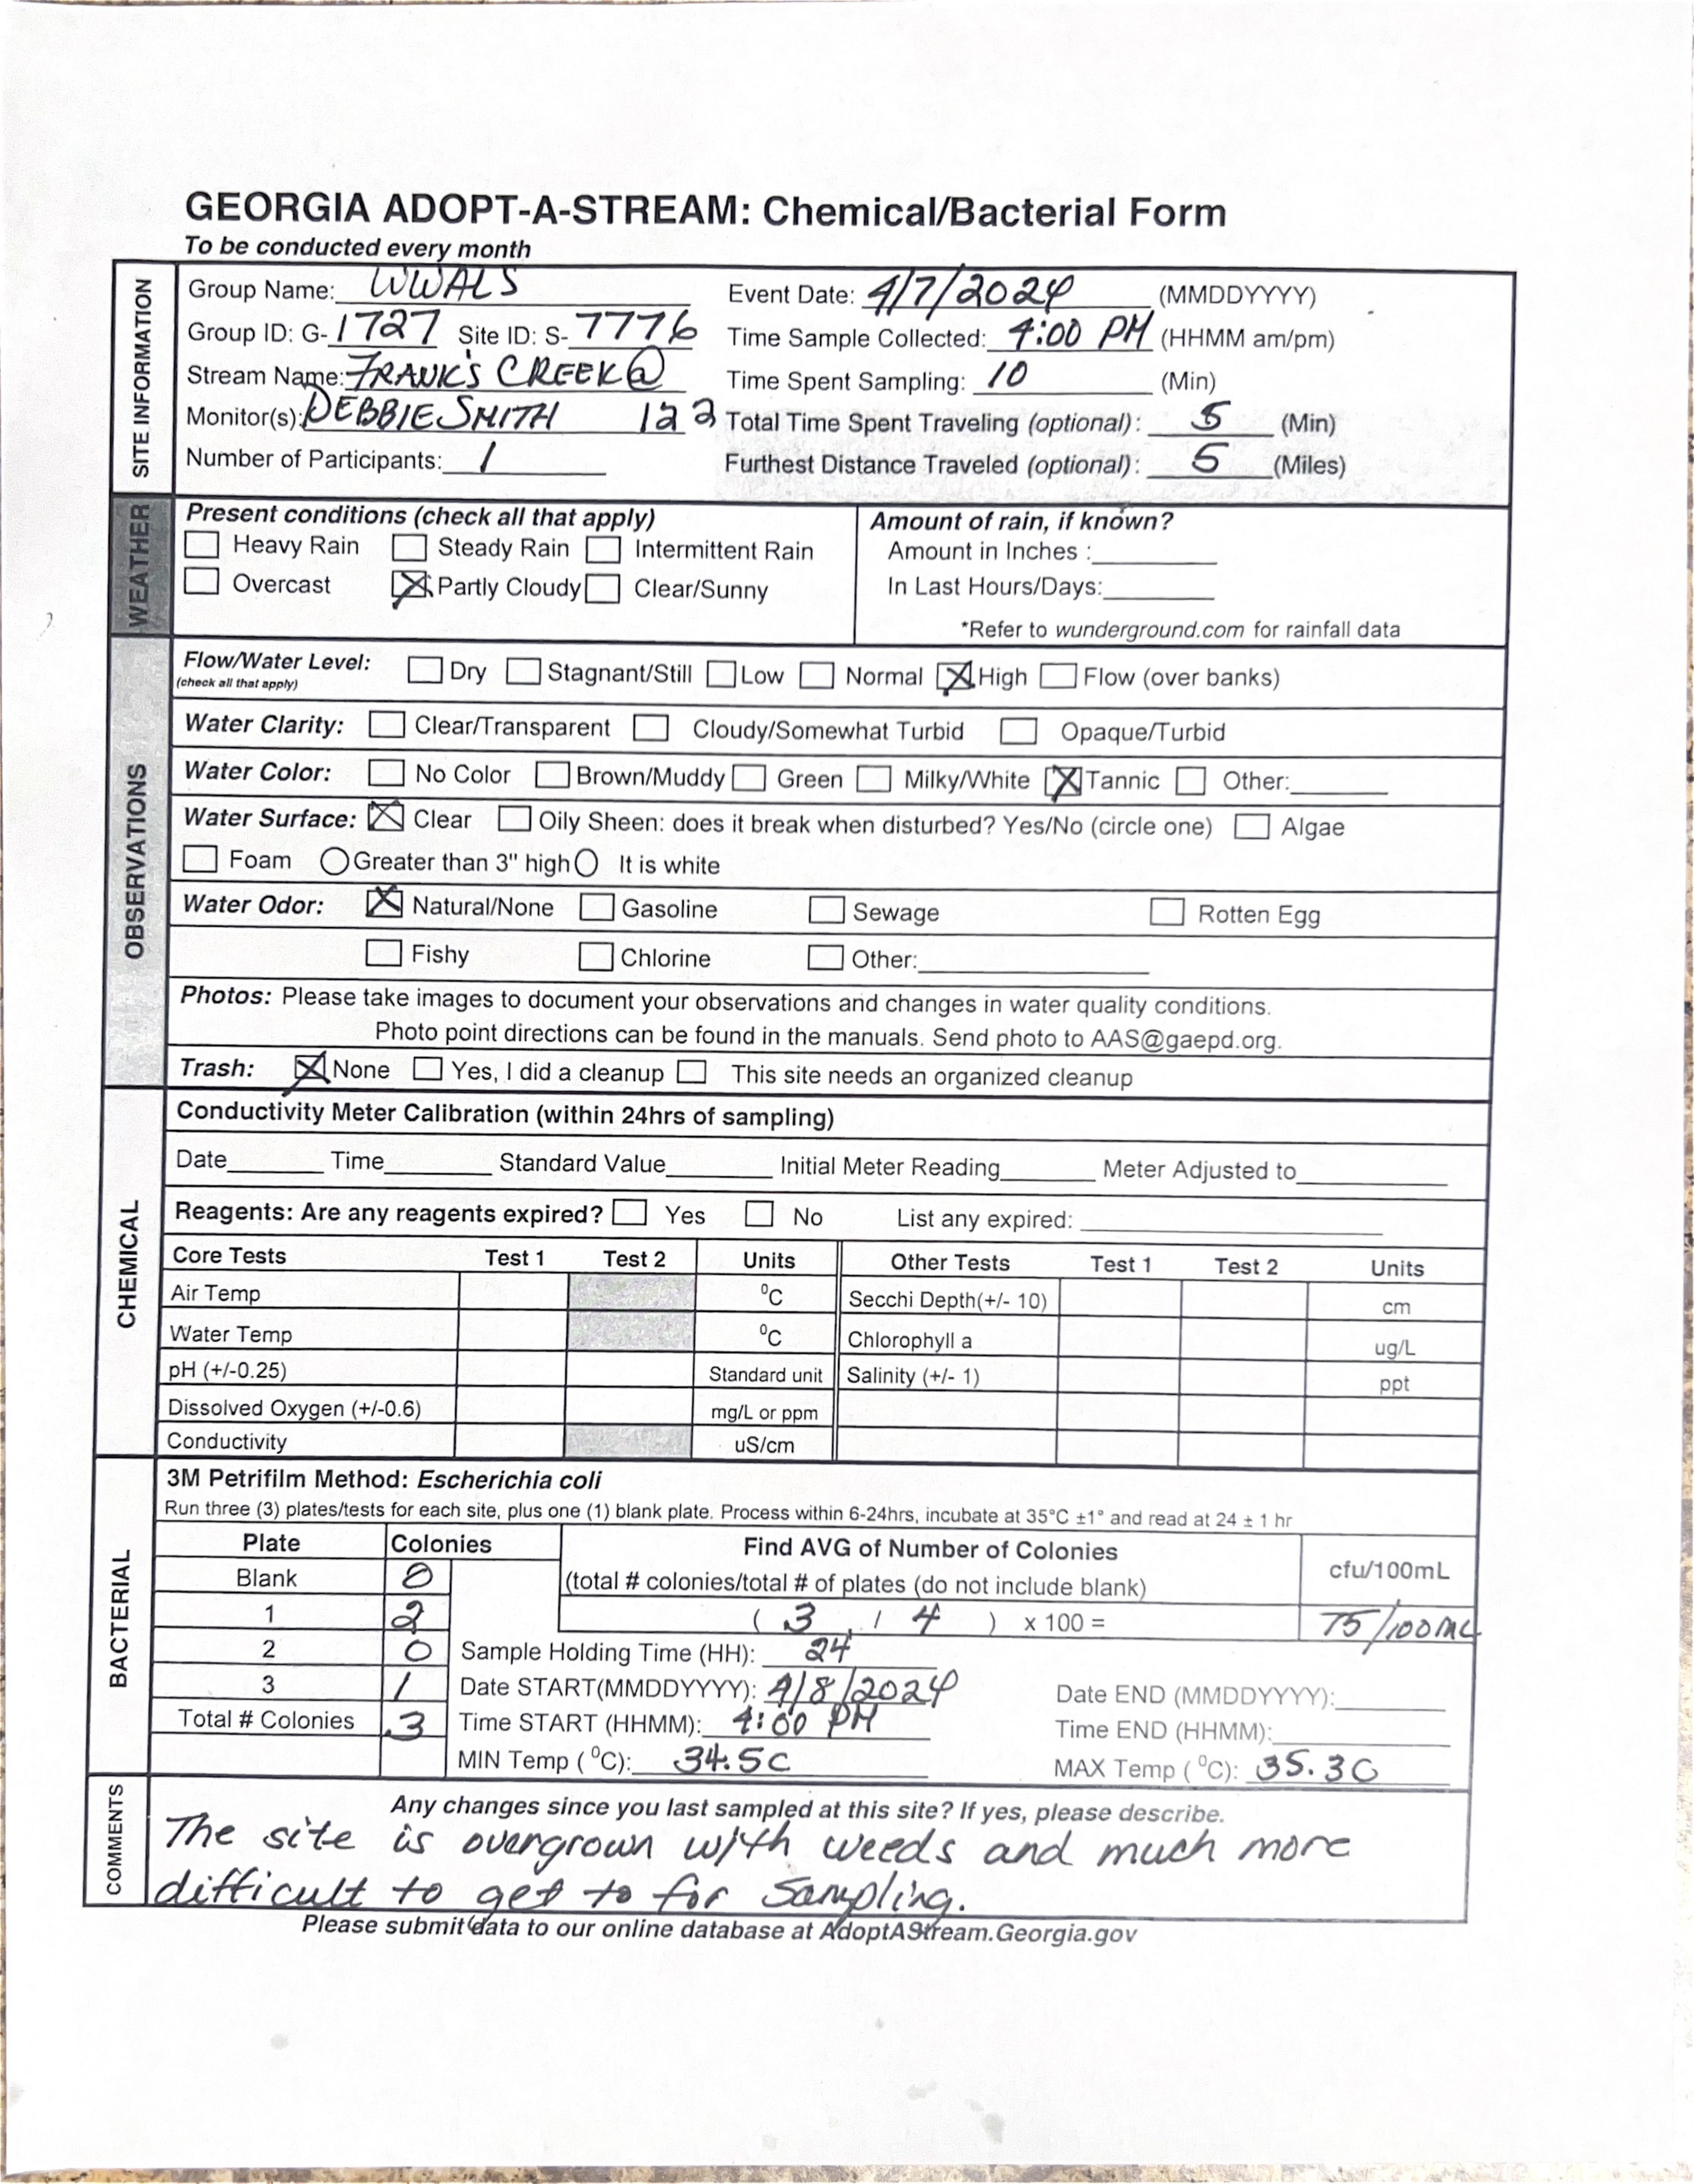 GEORGIA ADOPT-A-STREAM: Chemical/Bacterial Form
To be conducted every month
SITE INFORMATION
Group Name: WWALS Event Date: 4/7/2024 (MMDDYYYY)
Group ID: G-1727 Site ID: S-7776 Time Sample Collected: 4:00 PM (HHMM am/pm)
Stream Name: FRANK'S CREEK@ Time Spent Sampling: 10 (Min)
Monitor(s): DEBBIE SMITH 122 Total Time Spent Traveling (optional): 5 (Min)
Number of Participants: 1 Furthest Distance Traveled (optional): 5 (Miles)
WEATHER
Present conditions (check all that apply) Amount of rain, if known?
Heavy Rain Steady Rain Intermittent Rain Amount in Inches :
Overcast X Partly Cloudy Clear/Sunny In Last Hours/Days:
*Refer to wunderground.com for rainfall data
OBSERVATIONS
Flow/Water Level: Dry Stagnant/Still Low Normal X High Flow (over banks)
(check all that apply)
Water Clarity: Clear/Transparent Cloudy/Somewhat Turbid Opaque/Turbid
Water Color: No Color Brown/Muddy Green Milky/White X Tannic Other:
Water Surface: X Clear Oily Sheen: does it break when disturbed? Yes/No (circle one) Algae
Foam Greater than 3" high It is white
Water Odor: X Natural/None Gasoline Sewage Rotten Egg
Fishy Chlorine Other:
Photos: Please take images to document your observations and changes in water quality conditions.
Photo point directions can be found in the manuals. Send photo to AAS@gaepd.org.
Trash: X None Yes, I did a cleanup This site needs an organized cleanup
CHEMICAL
Conductivity Meter Calibration (within 24hrs of sampling)
Date Time Standard Value Initial Meter Reading Meter Adjusted to
Reagents: Are any reagents expired? Yes No List any expired:
Core Tests Test 1 Test 2 Units Other Tests Test 1 Test 2 Units
Air Temp °C Secchi Depth(+/- 10) cm
Water Temp °C Chlorophyll a ug/L
pH (+/-0.25) Standard unit Salinity (+/- 1) ppt
Dissolved Oxygen (+/-0.6) mg/L or ppm
Conductivity uS/cm
BACTERIAL
3M Petrifilm Method: Escherichia coli
Run three (3) plates/tests for each site, plus one (1) blank plate. Process within 6-24hrs, incubate at 35°C ±1° and read at 24 ± 1 hr
Plate Colonies Find AVG of Number of Colonies cfu/100mL
Blank 0 (total # colonies/total # of plates (do not include blank)
1 2 ( 3 / 4 ) x 100 = 75/100ML
2 0 Sample Holding Time (HH): 24
3 1 Date START(MMDDYYYY): 4/8/2024 Date END (MMDDYYYY):
Total # Colonies 3 Time START (HHMM): 4:00 PM Time END (HHMM):
MIN Temp (°C): 34.5C MAX Temp (°C): 35.3C
COMMENTS
Any changes since you last sampled at this site? If yes, please describe.
The site is overgrown with weeds and much more
difficult to get to for sampling.
Please submit data to our online database at AdoptAStream.Georgia.gov